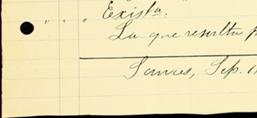 " " Exista."
La que resulta
Somees, Sep. 1